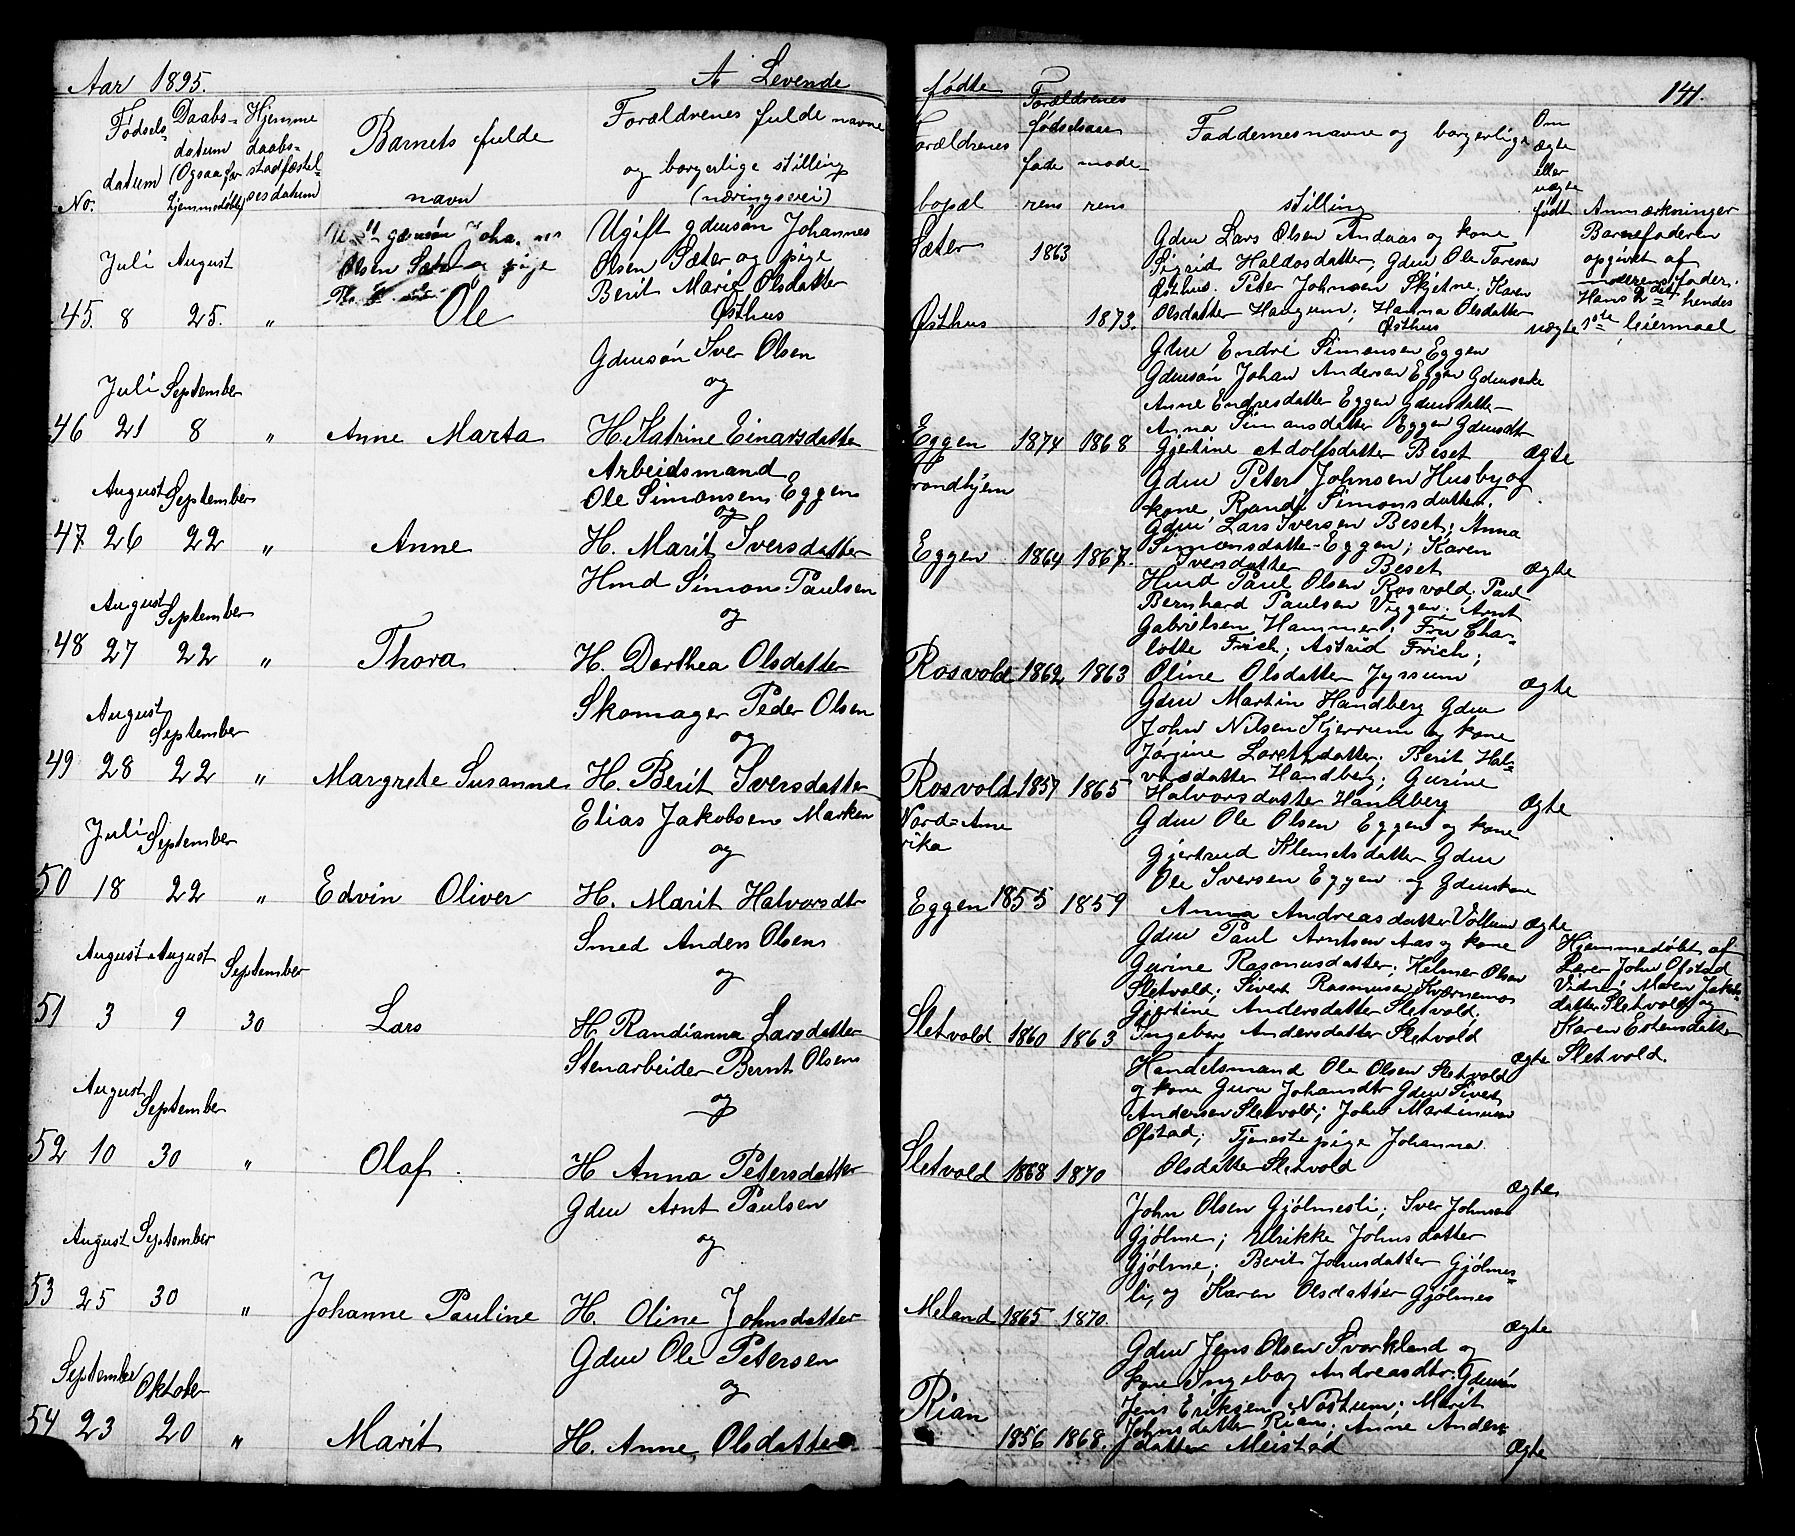 Aar 1895.
A Levende
fødte
141.
No.
Fødsels-
datum
Daabs-
datum
(Ogsaa for
hjemmedøbte)
Hjemme
daabs-
stadfæstel-
sesdatum
Barnets fulde
navn
Forældrenes fulde navne
og borgerlige stilling
(næringsvei)
Forældrenes
bopæl
Forældrenes
fødselsaar
fade mode-
rens rens
Faddernes navne og borgerlige
stilling
Om
ægte
eller
uægte
født
Anmærkninger
Juli August
45. 8 25. "
Ole
Ugift gdmsøn Johannes
Olsen Sæter og pige
Berit Marie Olsdatter
Østhus
Sæter 1863
Østhus 1873.
Gdm Lars Olsen Andaas og kone
Sigrid Haldosdatter, Gdm Ole Toresen
Østhus. Peter Johnsen Skjetne. Karen
Olsdatter Haugum; Hanna Olsdatter
Østhus
uægte
Barnefaderen
opgivet af
moderens fader.
Hans 2det hendes
1ste leiermaal
Juli September
46 21 8 "
Anne Marta
Gdmsøn Iver Olsen
og
H. Katrine Einarsdatter
Eggen 1874 1868
Gdm Endre Simonsen Eggen
Gdmsøn Johan Andersen Eggen Gdmenke
Anne Endresdatter Eggen Gdmsdatter
Anna Simonsdatter Eggen Gdmsdtr
Gjertine Adolfsdatter Beset
ægte
August September
47 26 22 "
Anne
Arbeidsmand
Ole Simonsen Eggen
og
H. Marit Iversdatter
Trondhjem
Eggen 1864 1867.
Gdm Peter Johnsen Husby og
kone Randi Simonsdatter.
Gdm Lars Iversen Beset; Anna
Simonsdatter Eggen; Karen
Iversdatter Beset
Ægte
August September
48 27 22 "
Thora
Hmd Simon Paulsen
og
H. Dorthea Olsdatter
Rosvold 1862 1863
Hmd Paul Olsen Rosvold; Paul
Bernhard Paulsen Viggen; Arnt
Gabrielsen Hammer; Fru Char-
lotte Frich; Astrid Frich;
Oline Olsdatter Jyssum
Ægte
August September
49 28 22 "
Margrete Susanne
Skomager Peder Olsen
og
H. Berit Iversdatter
Rosvold 1857 1865
Gdm Martin Handberg Gdm
John Nilsen Kjerrum og kone
Jørgine Loretsdatter; Berit Hal-
vorsdatter Handberg; Gurine
Halvorsdatter Handberg
Ægte
Juli September
50 18 22 "
Edvin Oliver
Elias Jakobsen Marken
og
H. Marit Halvorsdtr
Nord-Ame
rika
Eggen 1855 1859
Gdm Ole Olsen Eggen og kone
Gjertrud Klemetsdatter Gdm
Ole Iversen Eggen og Gdmskone
Anna Andreasdatter Vollum
Ægte
August August September
51 3 9 30
Lars
Smed Anders Olsen
og
H. Randianna Larsdatter
Sletvold 1860 1863
Gdm Paul Arntsen Aas og kone
Gurine Rasmusdatter; Helmer Olsen
Sletvold; Sivert Rasmusen Kværnemo
Gjertine Andersdatter Sletvold;
Ingeborg Andersdatter Sletvold
Ægte
Hjemmedøbt af
Lærer John Ofstad
Vidner Maren Jakobs-
datter Sletvold og
Karen Estensdatter
Sletvold.
August September
52 10 30 "
Olaf.
Stenarbeider Bernt Olsen
og
H Anna Petersdatter
Sletvold 1868 1870
Handelsmand Ole Olsen Sletvold
og kone Guru Johansdtr Gdm Sivert
Andersen Sletvold; John Martinusen
Ofstad; Tjenestepige Johanna
Olsdatter Sletvold
Ægte
August September
53 25 30 "
Johanne Pauline
Gdm Arnt Paulsen
og
H. Oline Johnsdatter
Meland 1865 1870.
John Olsen Gjølmesli; Iver Johnsen
Gjølme; Ulrikke Johnsdatter
Gjølme; Berit Johnsdatter Gjølmes-
li, og Karen Olsdatter Gjølmes
Ægte
September Oktober
54 23 20 "
Marit
Gdm Ole Petersen
og
H. Anne Olsdatter
Rian
1856 1868.
Gdm Jens Olsen Svorkland og
kone Ingebor Andreasdtr. Gdmsøn
Jens Eriksen Nostum; Marit
Johnsdatter Rian; Anne Anders
datter Meistad
Ægte